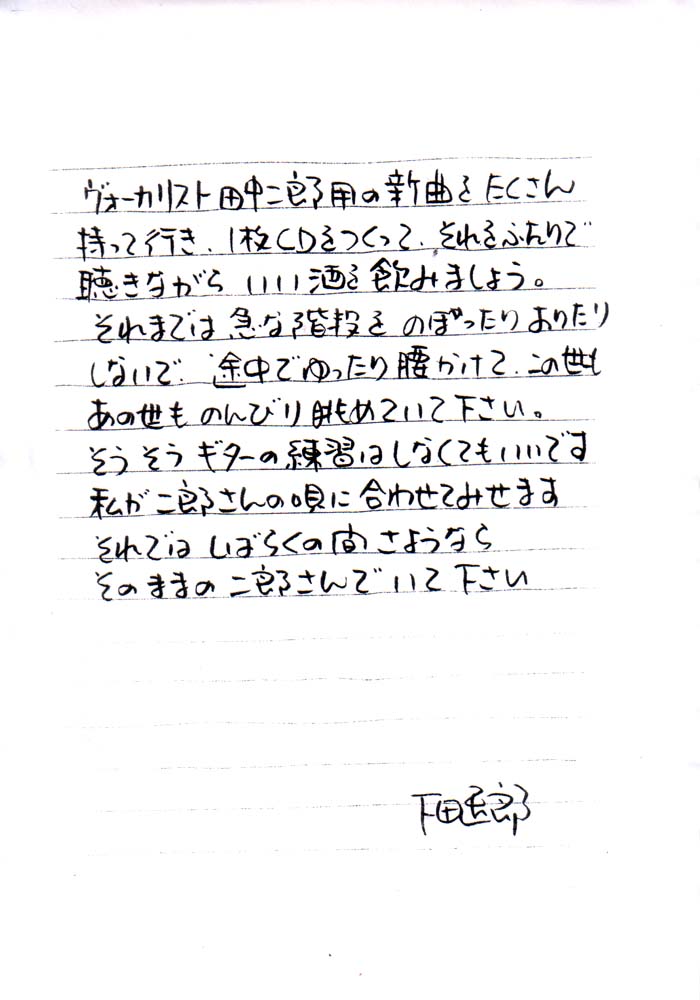 ヴォーカリスト田中二郎用の新曲をたくさん
持って行き、1枚CDをつくって、それをふたりで
聴きながら いい酒を飲みましょう。
それまでは 急な階段を のぼったりおりたり
しないで、途中でゆったり腰かけて、この世も
あの世も のんびり眺めていて下さい。
そうそう ギターの練習はしなくてもいいです
私が二郎さんの唄に合わせてみせます
それでは しばらくの間さようなら
そのままの 二郎さんでいて下さい
下田逸郎